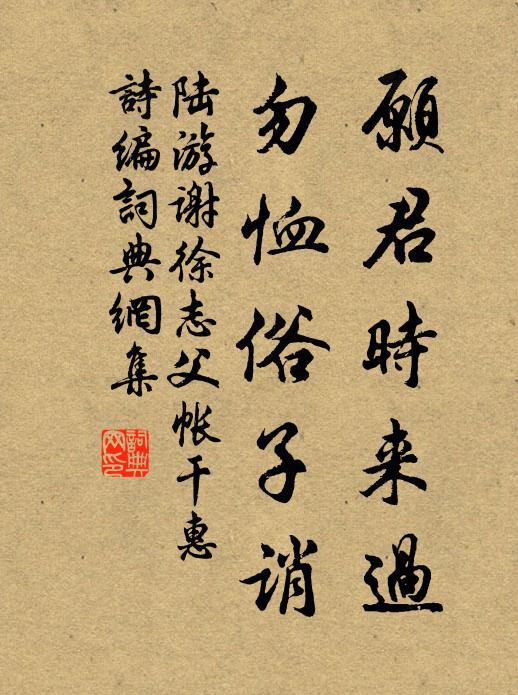 願君時来過
勿恤俗子誚
陆游谢徐志父帐干惠
詩編詞典網集
詞典网印